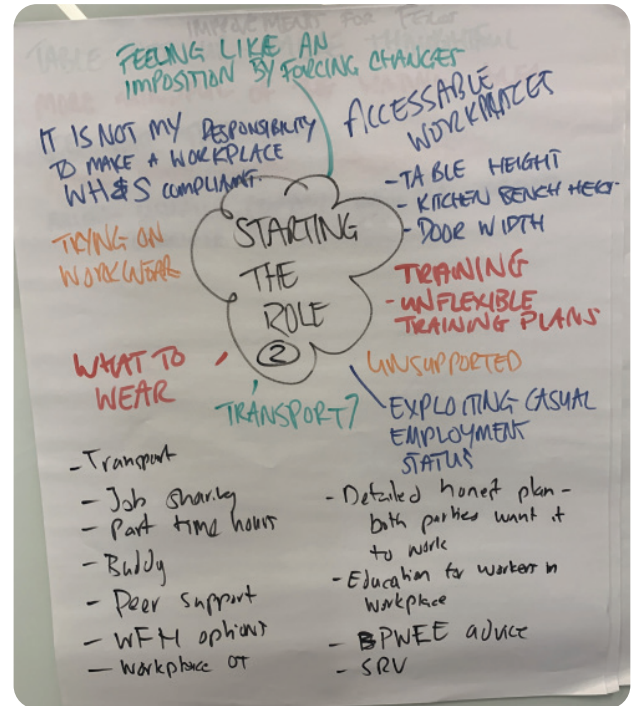 IMPROVEMENT FOR
TABLE
MORE
FEELING LIKE AN
IMPOSITION BY FORCING CHANGES
IT IS NOT MY RESPONSIBILITY
TO MAKE A WORKPLACE
WH&S COMPLIANT.
ACCESSABLE
WORKPLACE
- TABLE HEIGHT
- KITCHEN BENCH HEIGHT
- DOOR WIDTH
TRYING ON
WORKWEAR
STARTING
THE
ROLE
2
TRAINING
- UNFLEXIBLE
TRAINING PLANS
WHAT TO
WEAR
UNSUPPORTED
TRANSPORT?
EXPLOITING CASUAL
EMPLOYMENT
STATUS
- Transport
- Job sharing
- Part time hours
- Buddy
- Peer support
- WFH options
- Workplace OT
- Detailed honest plan -
both parties want it
to work
- Education for workers in
workplace
- BPWEE advice
- SRV